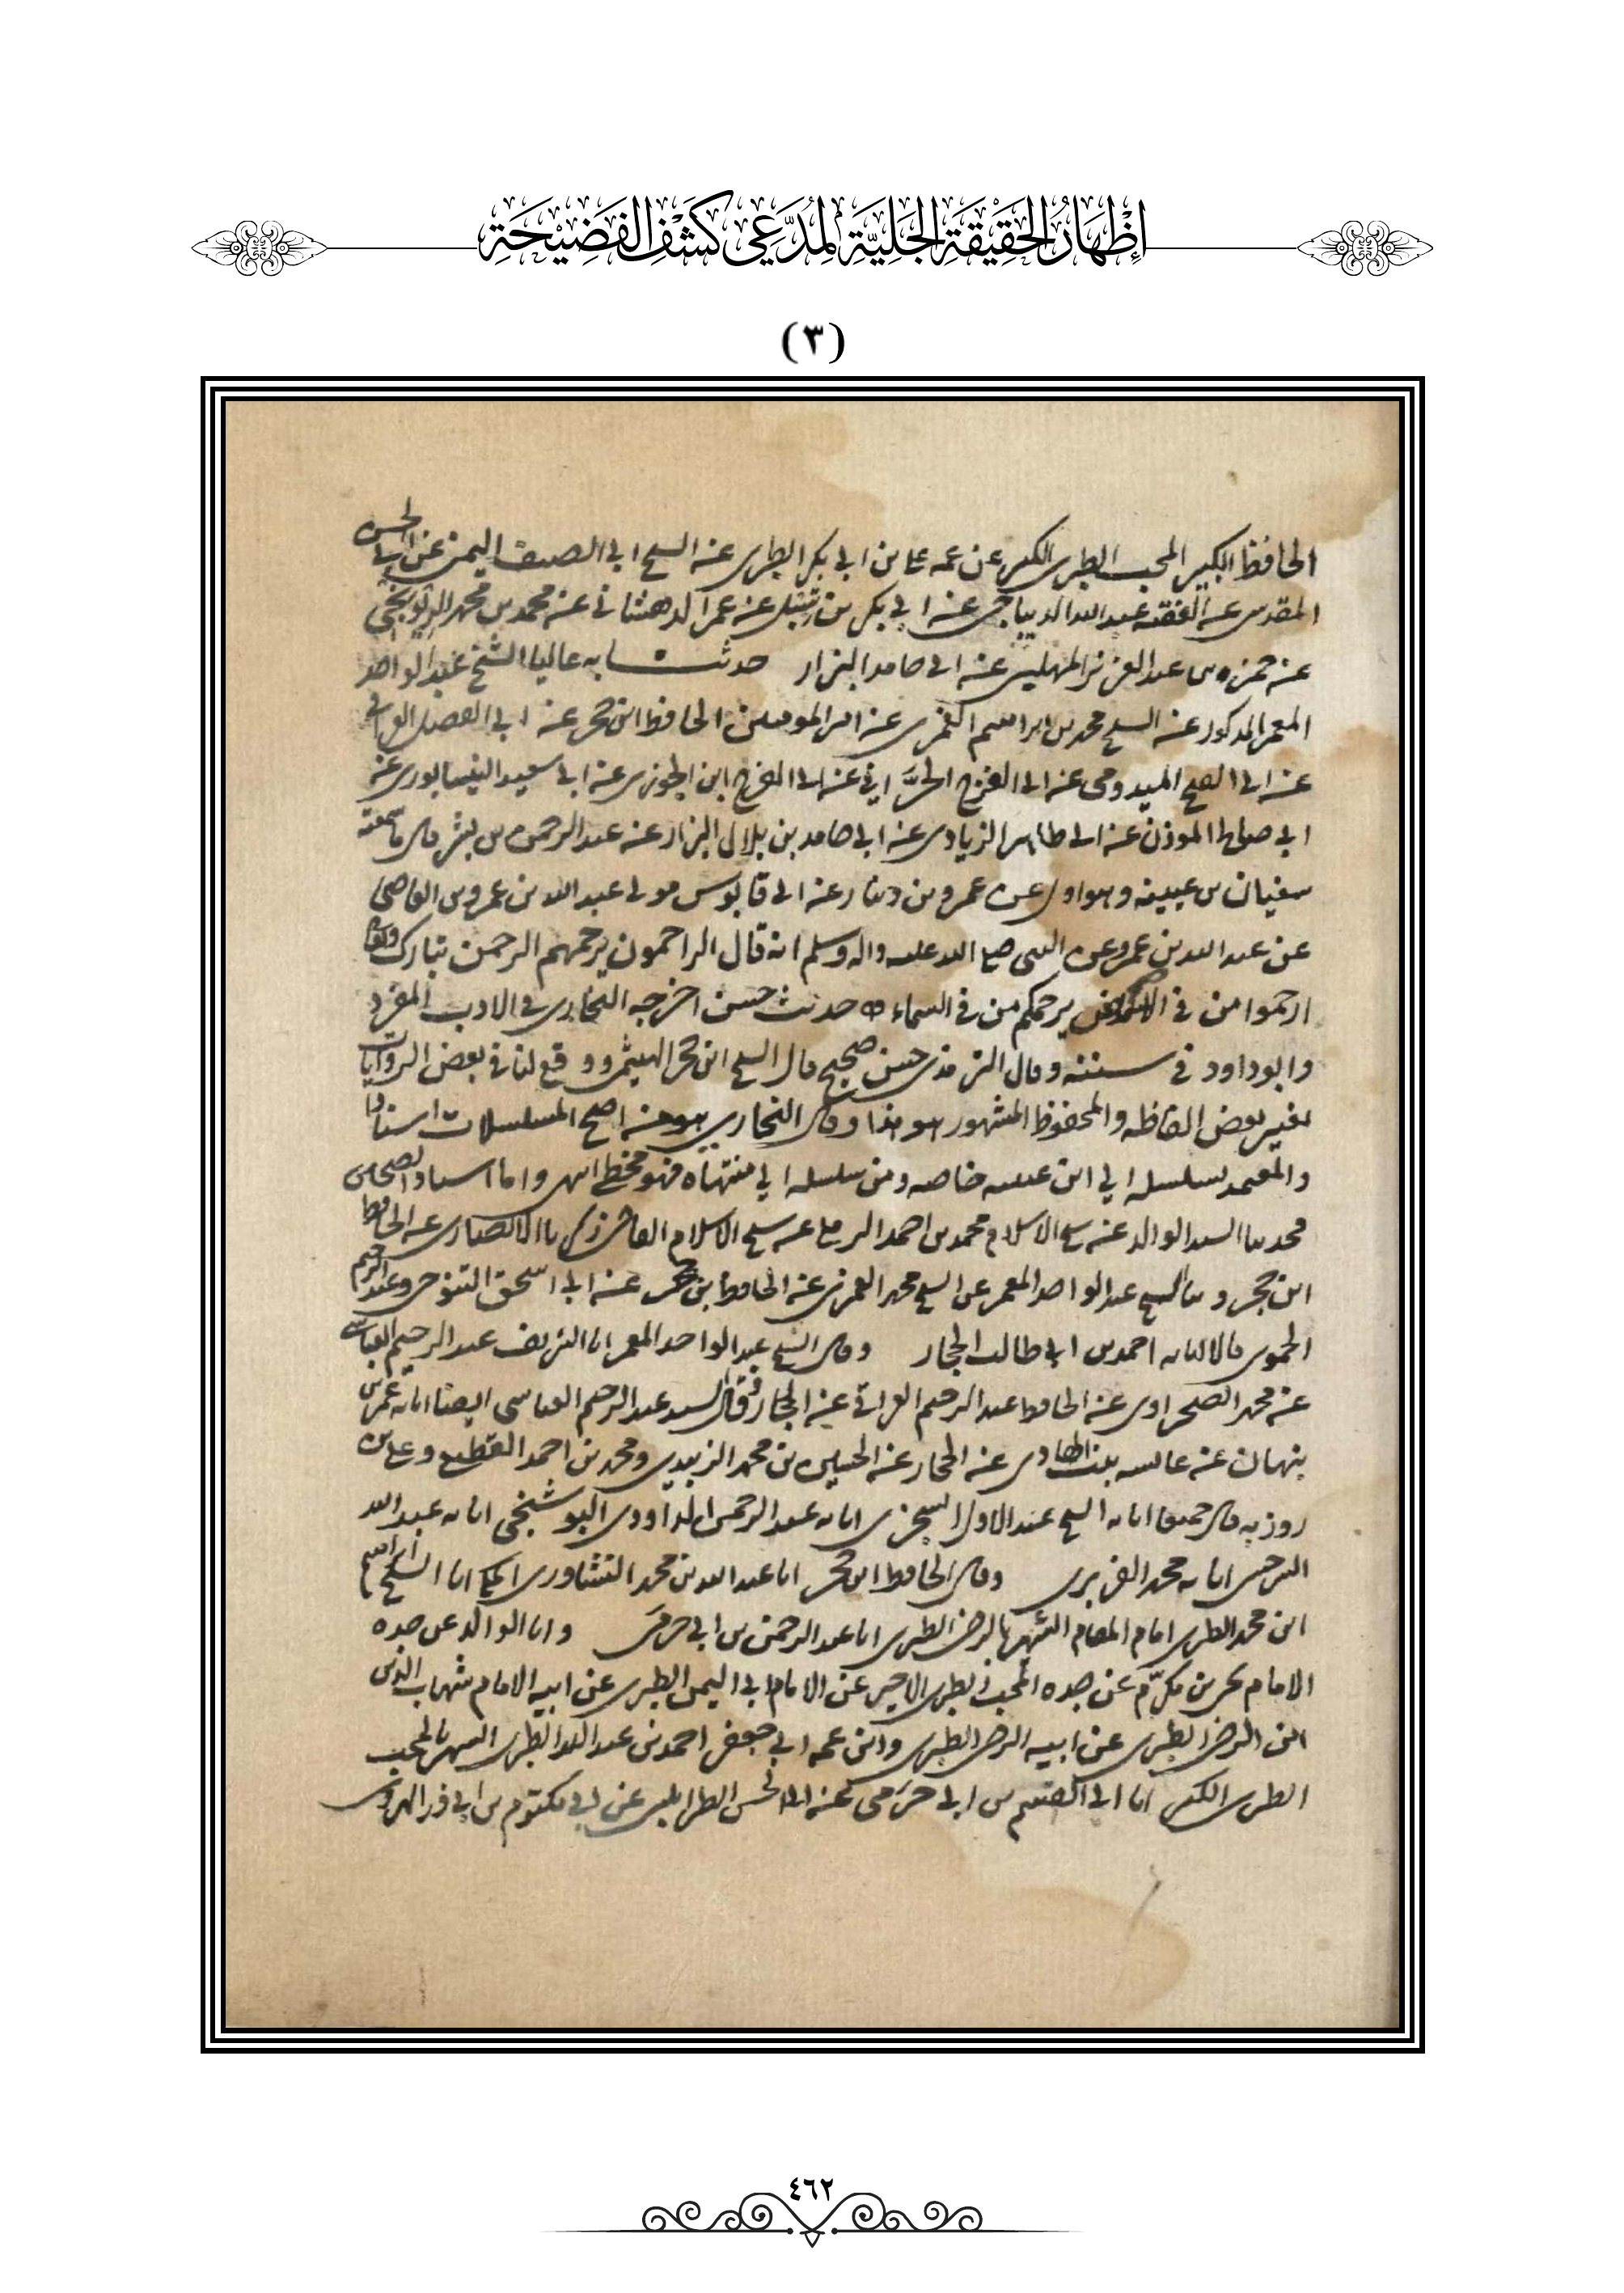 إِظْهَارُ الْحَقِيقَةِ الْجَلِيَّةِ لِمُدَّعِي كَشْفِ الْفَضِيْحَةِ
(٣)
الحافظ الكبير المحب الطبرى الكبير عن عمه على بن ابي بكر الطبرى عنه الشيخ ابي الصيف اليمنى عن ابي الحسن
المقدسى عنه الفقيه عبد الله الديباجى عنه ابي بكر بن عنه عمر الدهستانى عنه محمد بن محمد
عنه حمزه بن عبد العزيز المهلبى عنه ابى حامد البزار حدثنا به عاليا الشيخ عبد الواحد
المعمر المذكور عنه الشيخ محمد بن ابراهيم الغمرى عنه امير المومنين الحافظ ابن حجر عنه ابي الفضل العراقى
عنه ابى الفتح الميدومى عنه ابى الفرج الحرّانى عنه ابى الفرج ابن الجوزى عنه ابى سعيد النيسابورى عنه
ابي صالح الموذن عنه ابى طاهر الزيادى عنه ابي حامد بن بلال البزار عنه عبد الرحمن بن بشر قال سمعته
سفيان بن عيينه وهو اول عن عمرو بن دينار عنه ابى قابوس مولى عبد الله بن عمرو بن العاصى
عن عبد الله بن عمرو عن النبى صلى الله عليه واله وسلم انه قال الراحمون يرحمهم الرحمن تبارك وتعالى
ارحموا من في الارض يرحمكم من في السماء حديث حسن اخرجه البخارى في الادب المفرد
وابو داود في سننه وقال الترمذى حسن صحيح قال الشيخ ابن حجر الهيثمى ووقع لنا في بعض الروايات
تغيير بعض الفاظه والمحفوظ المشهور هو هذا وقال البخارى هو اصح المسلسلات اسنادا
والمعتمد تسلسله الي ابن عيينه خاصه ومن سلسله الي منتهاه فهو مخطئ انتهى واما اسناد الصحاح
محدثنا السيد الوالد عنه شيخ الاسلام محمد بن احمد الرملى عنه شيخ الاسلام القاضى زكريا الانصارى عنه الحافظ
ابن حجر و الشيخ عبد الواحد المعمر عن الشيخ محمد الغمرى عنه الحافظ ابن حجر عنه ابى اسحق التنوخى وعبد الرحيم
الحموى قالا انبانا به احمد بن ابي طالب الحجار وقال الشيخ عبد الواحد المعمر انا الشريف عبد الرحيم العباسى
عنه محمد الصحراوى عنه الحافظ عبد الرحيم العراقى عنه الحجار وقال السيد عبد الرحيم العباسى ايضا انا به عمر بن
بنهان عنه عائشه بنت الهادى عنه الحجار عنه الحسين بن محمد الزبيدي ومحمد بن احمد القطيعى وعلى بن
روزبه قال جميعا انا به الشيخ عبد الاول السجزى انا به عبد الرحمن الداوودى البوشنجى انا به عبد الله
السرخسى انا به محمد الفربرى وقال الحافظ ابن حجر انا عبد الله بن محمد النشاورى المكى انا الشيخ ابراهيم
ابن محمد الطبرى امام المقام الشهير بالرضى الطبرى انا عبد الرحمن بن ابي حرمى وانا الوالد عن جده
الامام يحيى بن مكرّم عن جده المحب الطبرى الاخير عن الامام ابي اليمن الطبرى عن ابيه الامام شهاب الدين
ابن الرضى الطبرى عن ابيه الرضى الطبرى وابن عمه ابي جعفر احمد بن عبد الله الطبرى الشهير بالمحب
الطبرى الكبير انا ابى القسم بن ابي حرمى عنه ابى الحسن الطرابلسى عن ابي مكتوم بن ابي ذر الهروى
٤٦٢